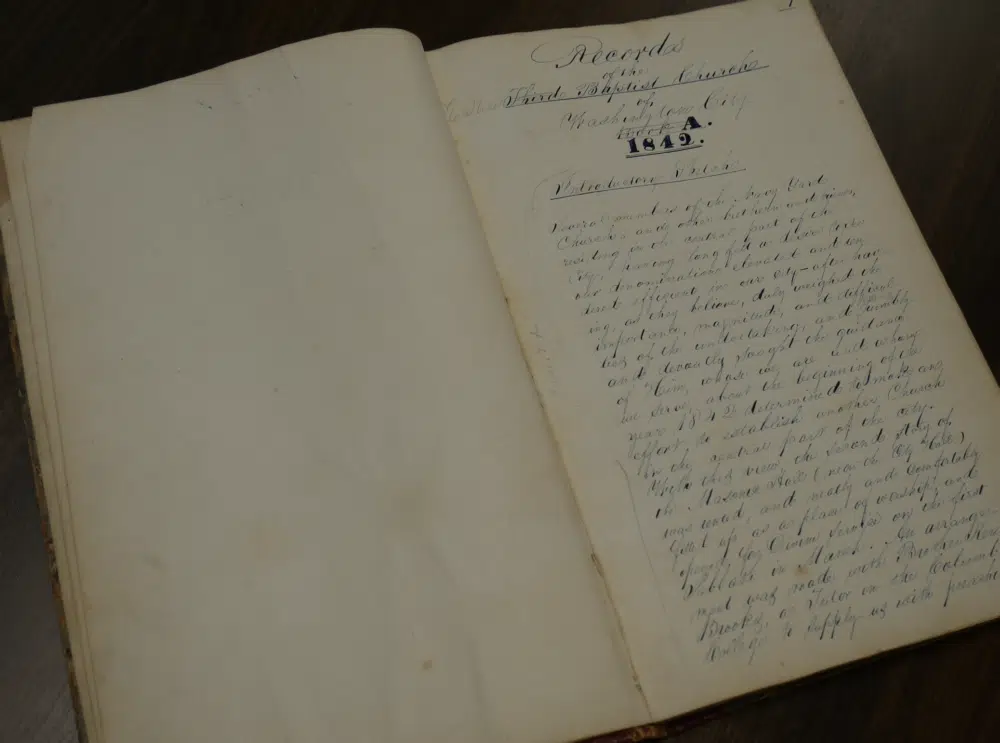 1
Records
of the
Third Baptist Church
of
Washington City
Book A.
1842.
Introductory Sketch
Several members of the Navy Yard
Church, and other brethren and sisters,
residing in the central part of the
City, having long felt a desire to see
our denomination elevated and
efficient in our city - after hav-
ing, as they believe, duly weighed the
importance, magnitude, and difficul-
ties of the undertaking, and humbly
and devoutly sought the guidance
of Him, whose we are and whom
we serve, about the beginning of the
year 1842 determined to make an
effort to establish another Church
in the central part of the city.
With this view the second story of
the Masonic Hall (near the City Hall)
was rented, and neatly and comfortably
fitted up as a place of worship, and
opened for Divine Service on the first
Sabbath in March. An arrange-
ment was made with Brother
Brooks, a Tutor in the Columbian
College to supply us with preach